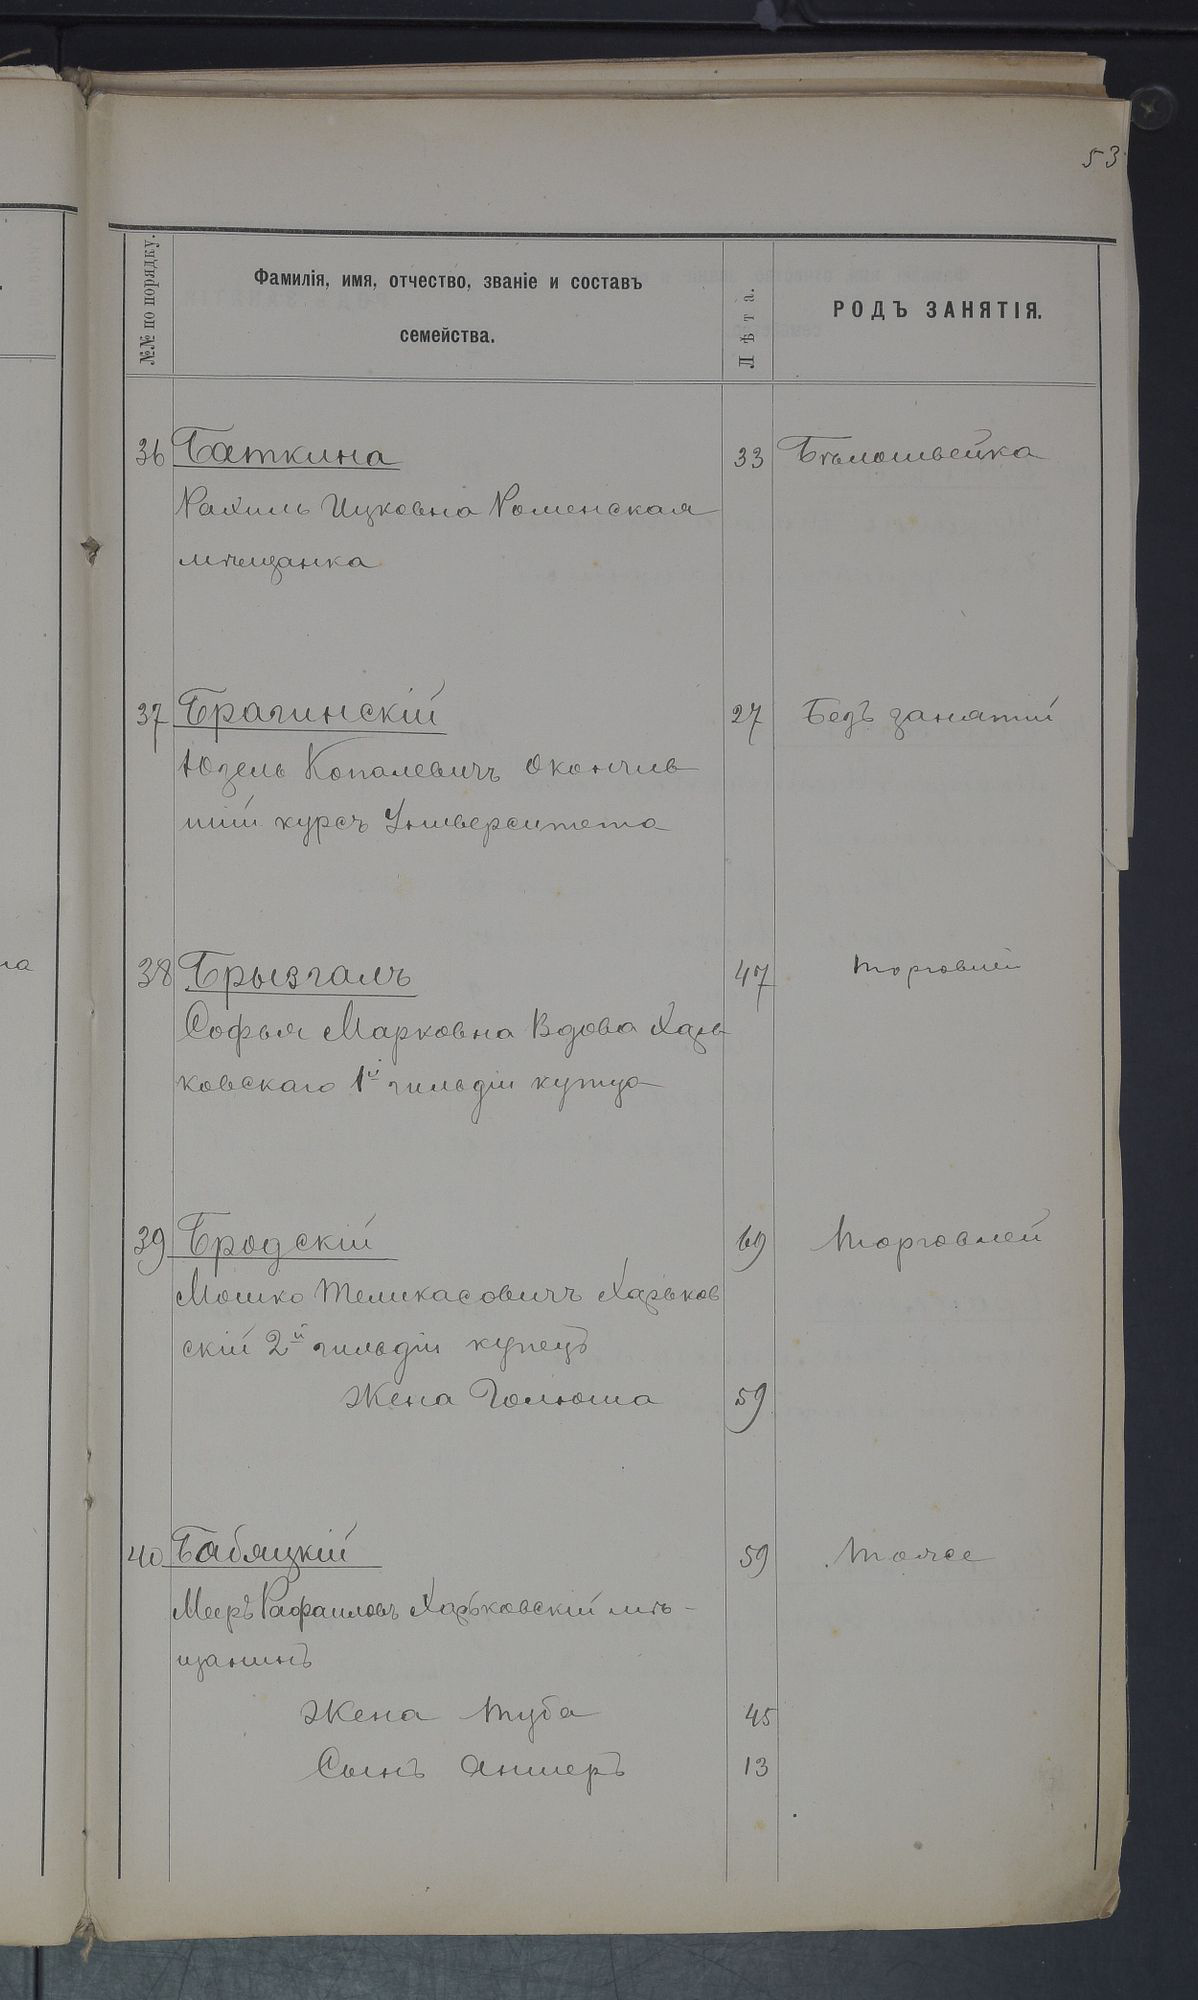 53
№№ по порядку.
Фамилія, имя, отчество, званіе и составъ
семейства.
Лѣта.
РОДЪ ЗАНЯТІЯ.
36 Баткина 33 Бѣлошвейка
Рахиль Ицковна Роменская
мѣщанка
37 Брагинскій 27 Безъ занятій
Юзель Копалевичъ Окончив
шій курсъ Университета
38 Брызгалъ 47 торговлей
Софья Марковна Вдова Харь
ковскаго 1й гильдіи купца
39 Бродскій 69 Торговлей
Мошко Теликасовичъ Харьков
скій 2й гильдіи купецъ
Жена Голюша 59
40 Бабяцкій 59 Тоже
Мееръ Рафаиловъ Харьковскій мѣ-
щанинъ
Жена Туба 45
Сынъ Аншеръ 13